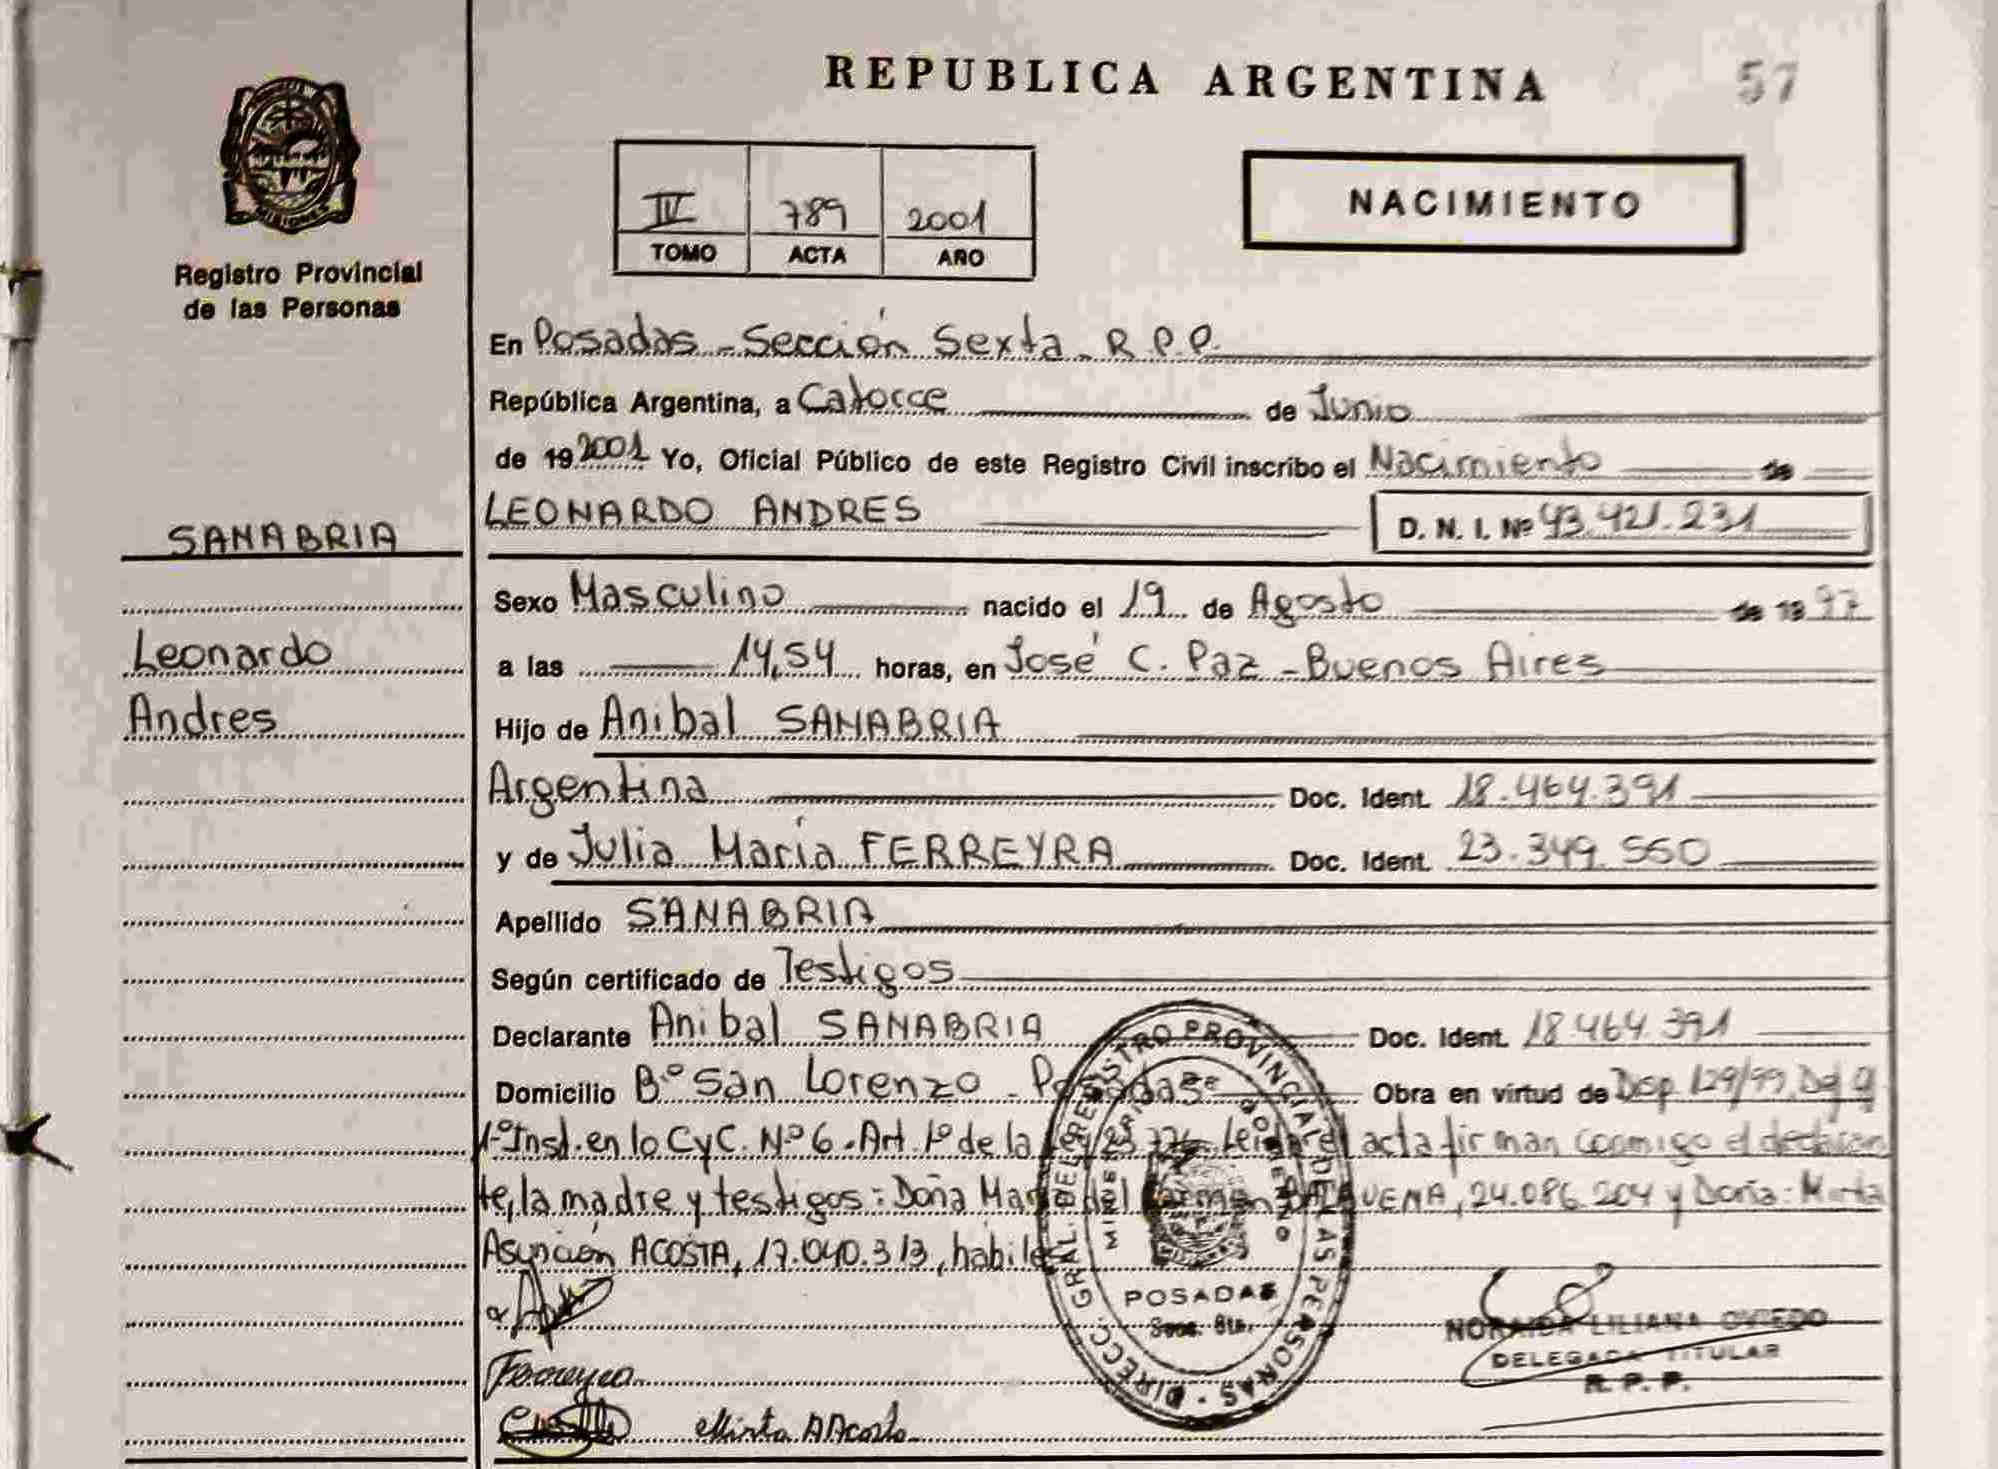 REPUBLICA ARGENTINA
57
MISIONES
Registro Provincial
de las Personas
IV 789 2001
TOMO ACTA AÑO
NACIMIENTO
En Posadas - Sección Sexta - R.P.P.
República Argentina, a Catorce de Junio
de 19 2001 Yo, Oficial Público de este Registro Civil inscribo el Nacimiento de
SANABRIA
LEONARDO ANDRES D. N. I. Nº 43.421.231
Sexo Masculino nacido el 19 de Agosto de 19 97
Leonardo
a las 14,54 horas, en José C. Paz - Buenos Aires
Andres
Hijo de Anibal SANABRIA
Argentina Doc. Ident. 18.464.391
y de Julia María FERREYRA Doc. Ident. 23.349.550
Apellido SANABRIA
Según certificado de Testigos
Declarante Anibal SANABRIA Doc. Ident. 18.464.391
Domicilio Bº San Lorenzo - Posadas Obra en virtud de Disp 129/99
1º Inst. en lo CyC. Nº 6. Art. 1º de la acta firman conmigo el declaran
te, la madre y testigos: Doña María del , 24.086.204 y Doña: Mirta
Asunción ACOSTA, 17.040.313, habiles
DIRECC. GRAL. DEL REGISTRO PROVINCIAL DE LAS PERSONAS
MINISTERIO GOBIERNO
POSADAS
Secc. 6ta.
Ferreyra
Mirta A Acosta
LILIANA OVIEDO
DELEGADA TITULAR
R. P. P.